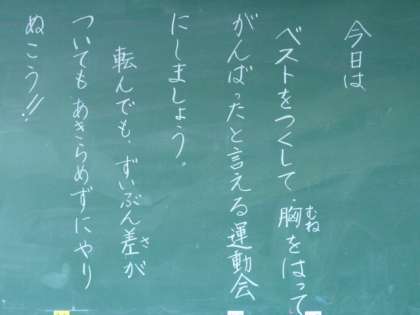 今日は
ベストをつくして、胸をはって
むね
がんばったと言える運動会
にしましょう。
転んでも、ずいぶん差が
さ
ついてもあきらめずにやり
ぬこう!!